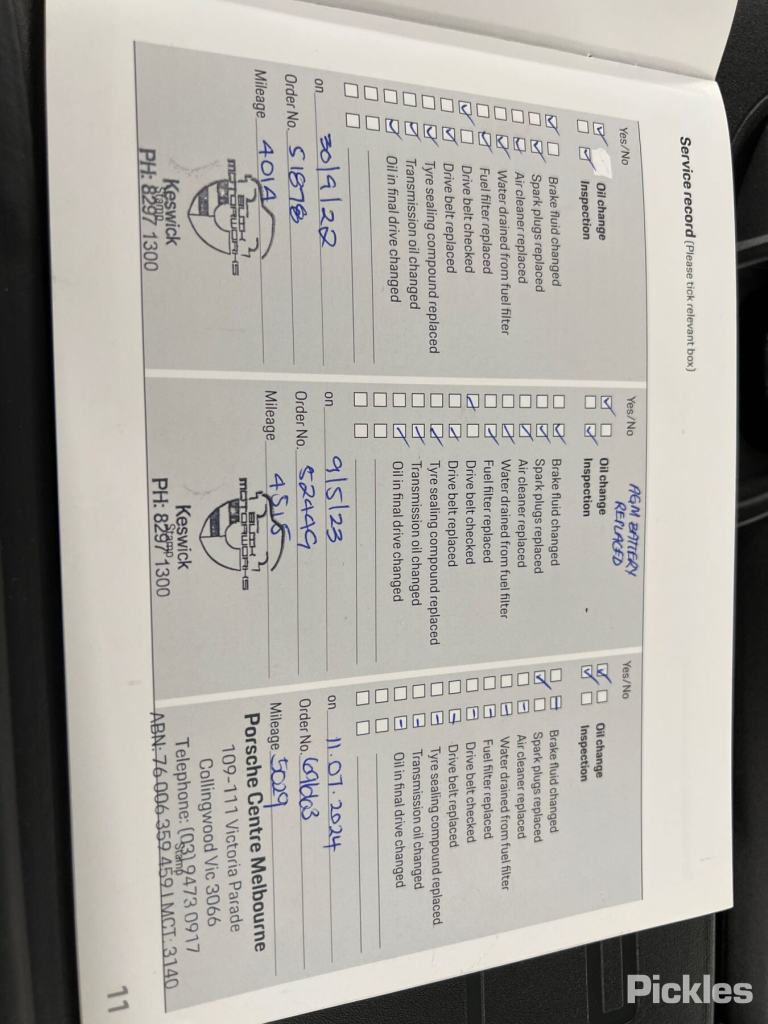 Service record (Please tick relevant box)
Yes/No
Oil change
Inspection
Brake fluid changed
Spark plugs replaced
Air cleaner replaced
Water drained from fuel filter
Fuel filter replaced
Drive belt checked
Drive belt replaced
Tyre sealing compound replaced
Transmission oil changed
Oil in final drive changed
on 30/9/22
Order No. 51878
Mileage 4014
BLOK
MOTORWORKS
Keswick
Stamp
PH: 8297 1300
AGM BATTERY
REPLACED
Yes/No
Oil change
Inspection
Brake fluid changed
Spark plugs replaced
Air cleaner replaced
Water drained from fuel filter
Fuel filter replaced
Drive belt checked
Drive belt replaced
Tyre sealing compound replaced
Transmission oil changed
Oil in final drive changed
on 9/5/23
Order No. 52449
Mileage 4515
BLOK
MOTORWORKS
Keswick
Stamp
PH: 8297 1300
Yes/No
Oil change
Inspection
Brake fluid changed
Spark plugs replaced
Air cleaner replaced
Water drained from fuel filter
Fuel filter replaced
Drive belt checked
Drive belt replaced
Tyre sealing compound replaced
Transmission oil changed
Oil in final drive changed
on 11.07.2024
Order No.
Mileage 5029
Porsche Centre Melbourne
109-111 Victoria Parade
Collingwood Vic 3066
Telephone: (03) 9473 0917
Stamp
ABN: 76 006 359 459 LMCT: 3140
11
Pickles